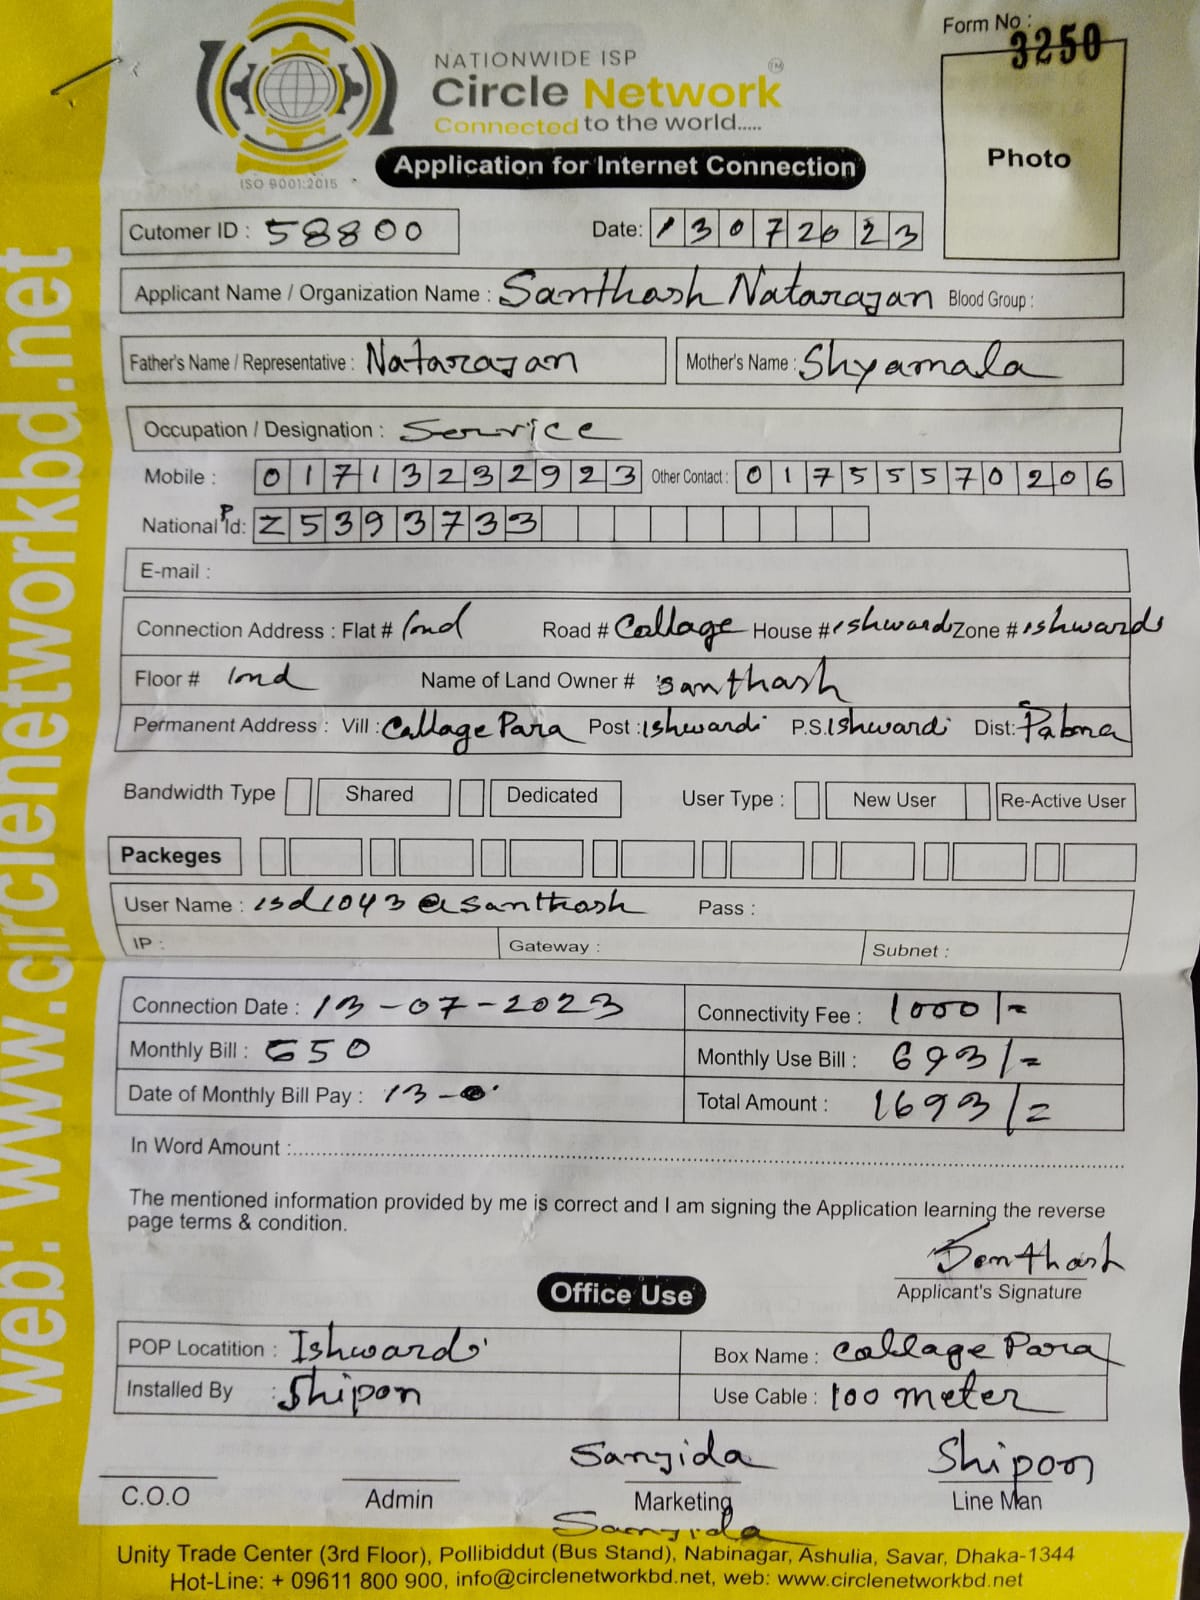 Form No : 3250
NATIONWIDE ISP
Circle Network TM
Connected to the world.....
ISO 9001:2015
Application for Internet Connection
Photo
web: www.circlenetworkbd.net
Cutomer ID : 58800 Date: 13072023
Applicant Name / Organization Name : Santhash Natarajan Blood Group :
Father's Name / Representative : Natarajan Mother's Name : Shyamala
Occupation / Designation : Service
Mobile : 01713232923 Other Contact : 01755570206
National P Id: Z5393733
E-mail :
Connection Address : Flat # Road # Callage House # ishwardi Zone # ishwardi
Floor # Name of Land Owner # santhash
Permanent Address : Vill : Callage Para Post : Ishwardi P.S. Ishwardi Dist: Pabna
Bandwidth Type Shared Dedicated User Type : New User Re-Active User
Packeges
User Name : isd1043@santhash Pass :
IP : Gateway : Subnet :
Connection Date : 13-07-2023 Connectivity Fee : 1000/=
Monthly Bill : 650 Monthly Use Bill : 693/=
Date of Monthly Bill Pay : 13- Total Amount : 1693/=
In Word Amount :
The mentioned information provided by me is correct and I am signing the Application learning the reverse
page terms & condition.
Santhash
Applicant's Signature
Office Use
POP Locatition : Ishwardi Box Name : Callage Para
Installed By : Shipon Use Cable : 100 meter
Sanjida Shipon
C.O.O Admin Marketing Line Man
Sanjida
Unity Trade Center (3rd Floor), Pollibiddut (Bus Stand), Nabinagar, Ashulia, Savar, Dhaka-1344
Hot-Line: + 09611 800 900, info@circlenetworkbd.net, web: www.circlenetworkbd.net